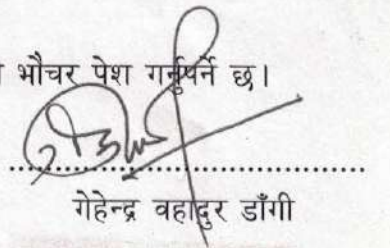 भौचर पेश गर्नुपर्ने छ।
गेहेन्द्र वहादुर डाँगी